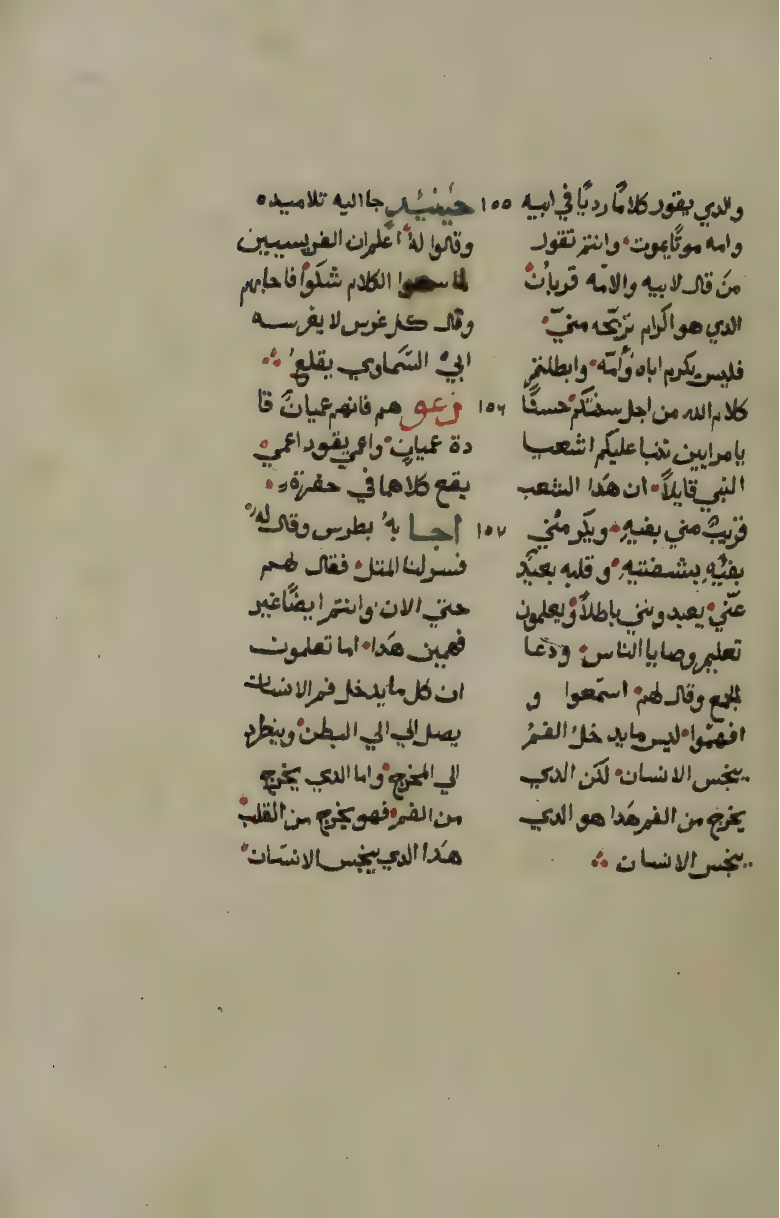 والدي يقول كلامًا رديًا في ابيه
وامه موتًا يموت وانتم تقول
من قال لابيه ولامّه قربانٌ
الدي هو اكرام تربّحه منيّ
فليس يكرم اباه وأمّه وابطلتم
كلام الله من اجل سنتكم حسنًا
يامرايين تنبا عليكم اشعيا
النبي قايلاً ان هَدا الشعب
قريبٌ مني بفيهِ ويكرمني
بشفتيهِ وقلبه بعيدٌ
عنّي يعبدونني باطلاً ويعلمون
تعليم وصايا الناس ودعا
الجمع وقال لهم اسمعوا و
افهموا ليس مايدخل الفمُ
ينجس الانسان لكن الدي
يخرج من الفم هَدا هو الدي
ينجس الانسان
١٥٥ حينيّدٍ جا اليه تلاميده
وقالوا لهُ اعلم ان الفريسيين
لما سمعوا الكلام شكوا فاجابهم
وقال كل غرس لا يغرسه
ابي السَماوي يقلعُ
١٥٦ دعوهم فانهم عميانٌ قا
دة عميانٍ واعمي يقود اعمي
يقع كلاهما في حفرةٍ
١٥٧ اجابهُ بطرس وقال لهُ
فسر لنا المتل فقال لهم
حتي الان وانتم ايضًا غير
فهمين هَدا اما تعلموت
ان كل مايدخل فم الانسان
يصل الي البطن وينطرد
الي المخرج واما الدي يخرج
من الفم فهو يخرج من القلب
هَدا الدي ينجس الانسَان